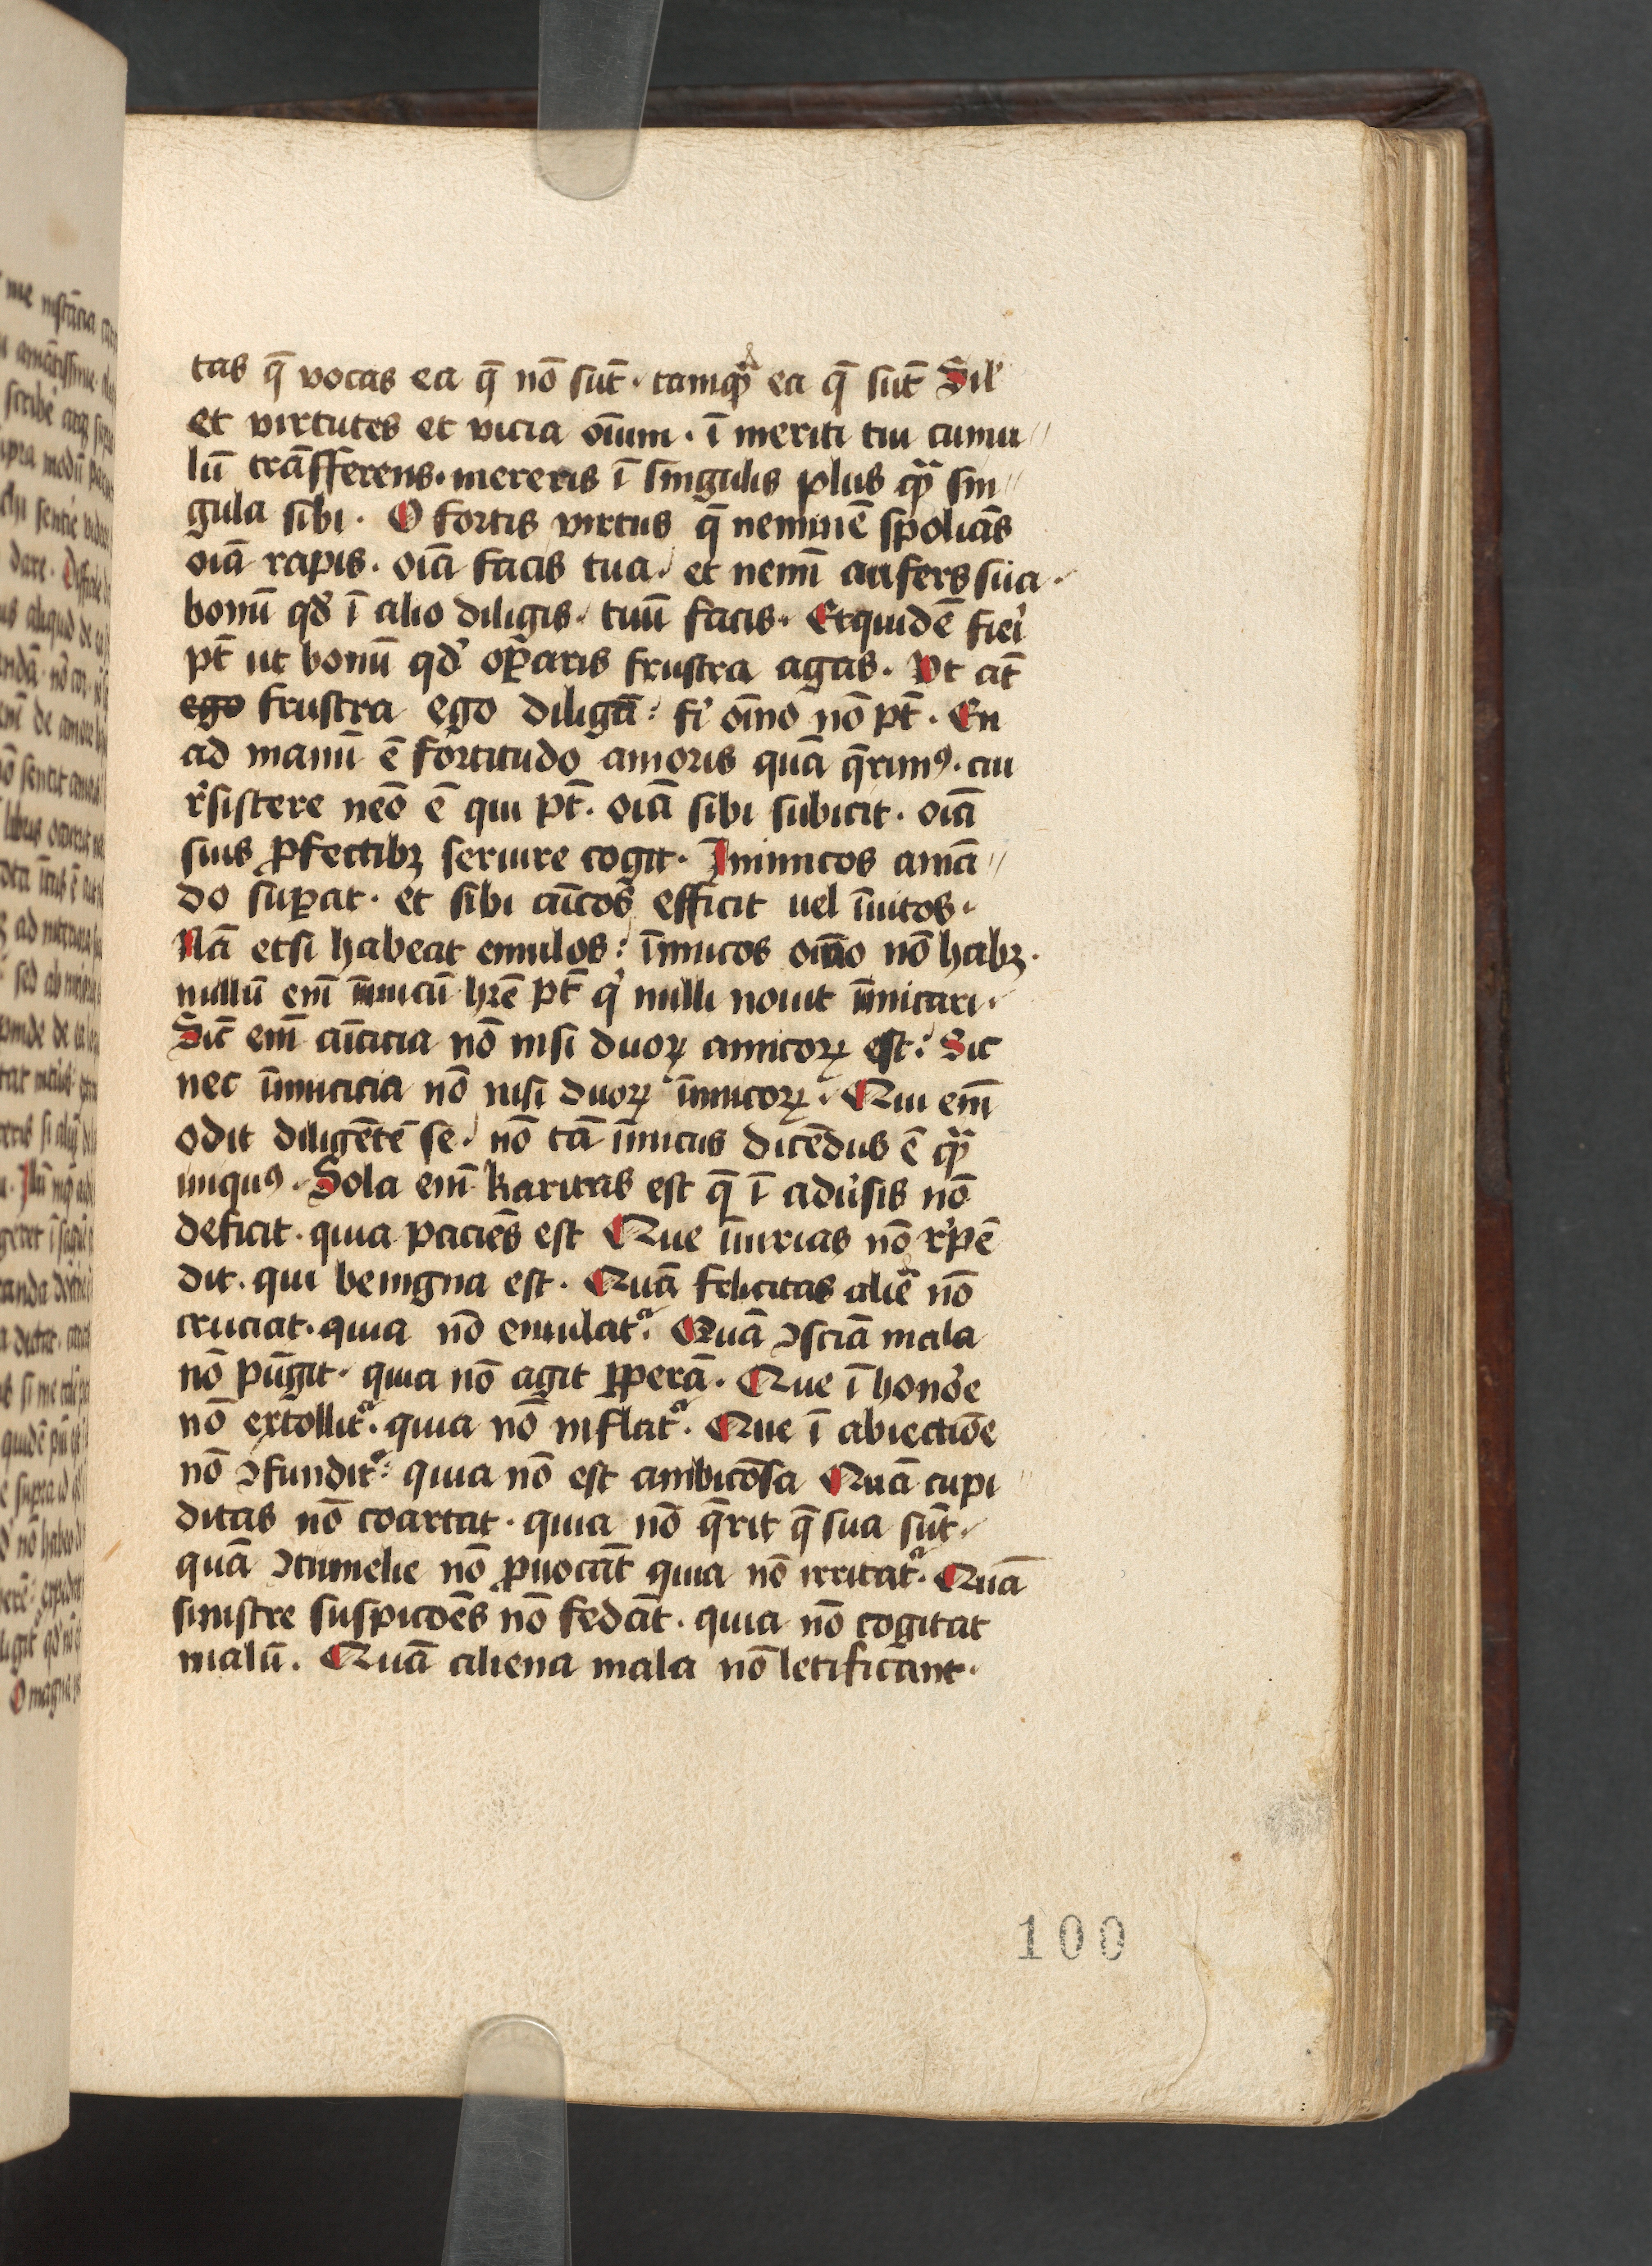 tas q̄ vocas ea q̄ nō sūt · tamqᷓ ea q̄ sūt Sił
et virtutes et vicia oīum · ī meriti tui cumu//
lū trāsfferens · mereris ī singulis plus qᷓ sin//
gula sibi · O fortis virtus q̄ neminē spoliās
oīa rapis · oīa facis tua · et nemī aufers sua ·
bonū qď ī alio diligis · tuū facis · Etquidē fieri
pt̄ ut bonū qď oꝑaris frustra agas · Ut at̄
ego frustra ego diligā : fi oīno nō pt̄ · En
ad manū ē fortitudo amoris quā q̄rimꝰ · cui
rsistere neō ē qui pt̄ · oīa sibi subicit · oīa
suis ꝓfectibꝫ seruire cogit · Inimicos amā//
do suꝑat · et sibi aīcos efficit uel īuitos ·
Nā etsi habeat emulos : īimicos oīno nō habꝫ ·
nullū enī īimicū hr̄e pt̄ q nulli nouit īimicari ·
Sic̄ enī aīcicia nō nisi duoꝝ amicoꝝ est : Sic
nec īimicicia nō nisi duoꝝ īimicoꝝ · Qui enī
odit diligētē se · nō tā īimicus dicēdus ē qᷓ
iniquꝰ · Sola enī karitas est q̄ ī adusis nō
deficit · quia paciēs est Que īiurias nō rpē
dit · qui benigna est · Quā felicitas aliē nō
cruciat · quia nō emulatᷓ · Quā ꝯsciā mala
nō pūgit · quia nō agit ꝑperā · Que ī honoe
nō extollitᷓ · quia nō inflatᷓ · Que ī abiectiōe
nō ꝯfunditᷓ : quia nō est ambicōsa Quā cupi//
ditas nō coartat · quia nō q̄rit q̄ sua sūt ·
quā ꝯtumelie nō ꝓuocāt quia nō irritatᷓ · Quā
sinistre suspicōes nō fedāt · quia nō cogitat
malū · Quā aliena mala nō letificant ·
100